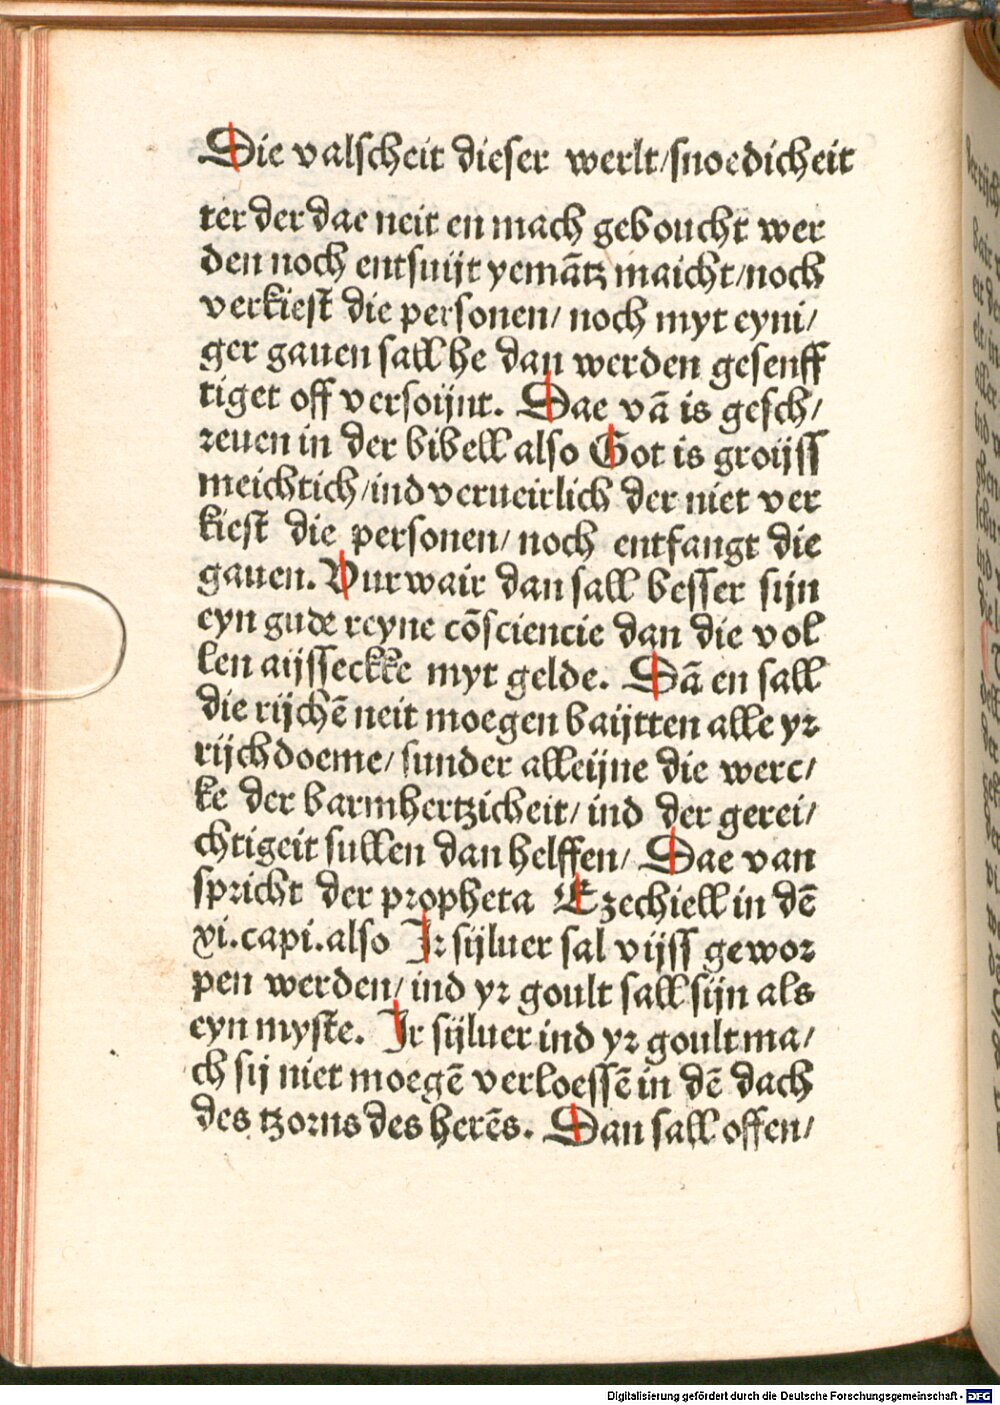 Die valscheit dieser werlt/snoedicheit
ter der dae neit en mach geboucht wer
den noch entsuijt yemātz maicht/noch
verkiest die personen/ noch myt eyni/
ger gauen sall he dan werden gesenff
tiget off versoijnt. Dae vā is gesch/
reuen in der bibell also Got is groijss
meichtich/ind verueirlich der niet ver
kiest die personen/ noch entfangt die
gauen. Vurwair dan sall besser sijn
eyn gude reyne cōsciencie dan die vol
len aijsseckke myt gelde. Dā en sall
die rijchē neit moegen baijtten alle yr
rijchdoeme/ sunder alleijne die werc/
ke der barmhertzicheit/ ind der gerei/
chtigeit sullen dan helffen/ Dae van
spricht der propheta Ezechiell in dē
vi.capi.also Ir sijluer sal vijss gewor
pen werden/ ind yr goult sall sijn als
eyn myste. Ir sijluer ind yr goult ma/
ch sij niet moegē verloessē in dē dach
des tzorns des herēs. Dan sall offen/
Digitalisierung gefördert durch die Deutsche Forschungsgemeinschaft - DFG